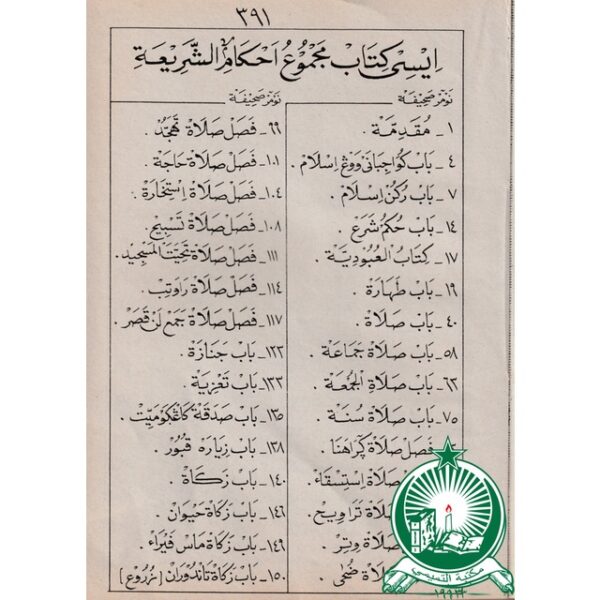 ٣٩١
ايسى كتاب مجموع احكام الشريعة
نومر صحيفة
١_ مقدمة .
٤_ باب كواجباني ووڠ اسلام .
٧_ باب ركن اسلام .
١٤_ باب حكم شرع .
١٧_ كتاب العبودية .
١٩_ باب طهارة .
٤٠_ باب صلاة .
٥٨_ باب صلاة جماعة .
٦٣_ باب صلاة الجمعة .
٧٥_ باب صلاة سنة .
فصل صلاة ڮراهنا .
صلاة استسقاء .
صلاة تراويح .
صلاة وتر .
صلاة ضحى .
نومر صحيفة
٩٩_ فصل صلاة تهجد .
١٠١_ فصل صلاة حاجة .
١٠٤_ فصل صلاة استخارة .
١٠٨_ فصل صلاة تسبيح .
١١١_ فصل صلاة تحيت المسجيد .
١١٤_ فصل صلاة راوتب .
١١٧_ فصل صلاة جمع لن قصر .
١٢٢_ باب جنازة .
١٣٢_ باب تعزية .
١٣٥_ باب صدقة كاڠڮو ميت .
١٣٨_ باب زياره قبور .
١٤٠_ باب زكاة .
١٤٦_ باب زكاة حيوان .
١٤٩_ باب زكاة ماس فيراء .
١٥٠_ باب زكاة تاندوران [زروع]
مكتبة